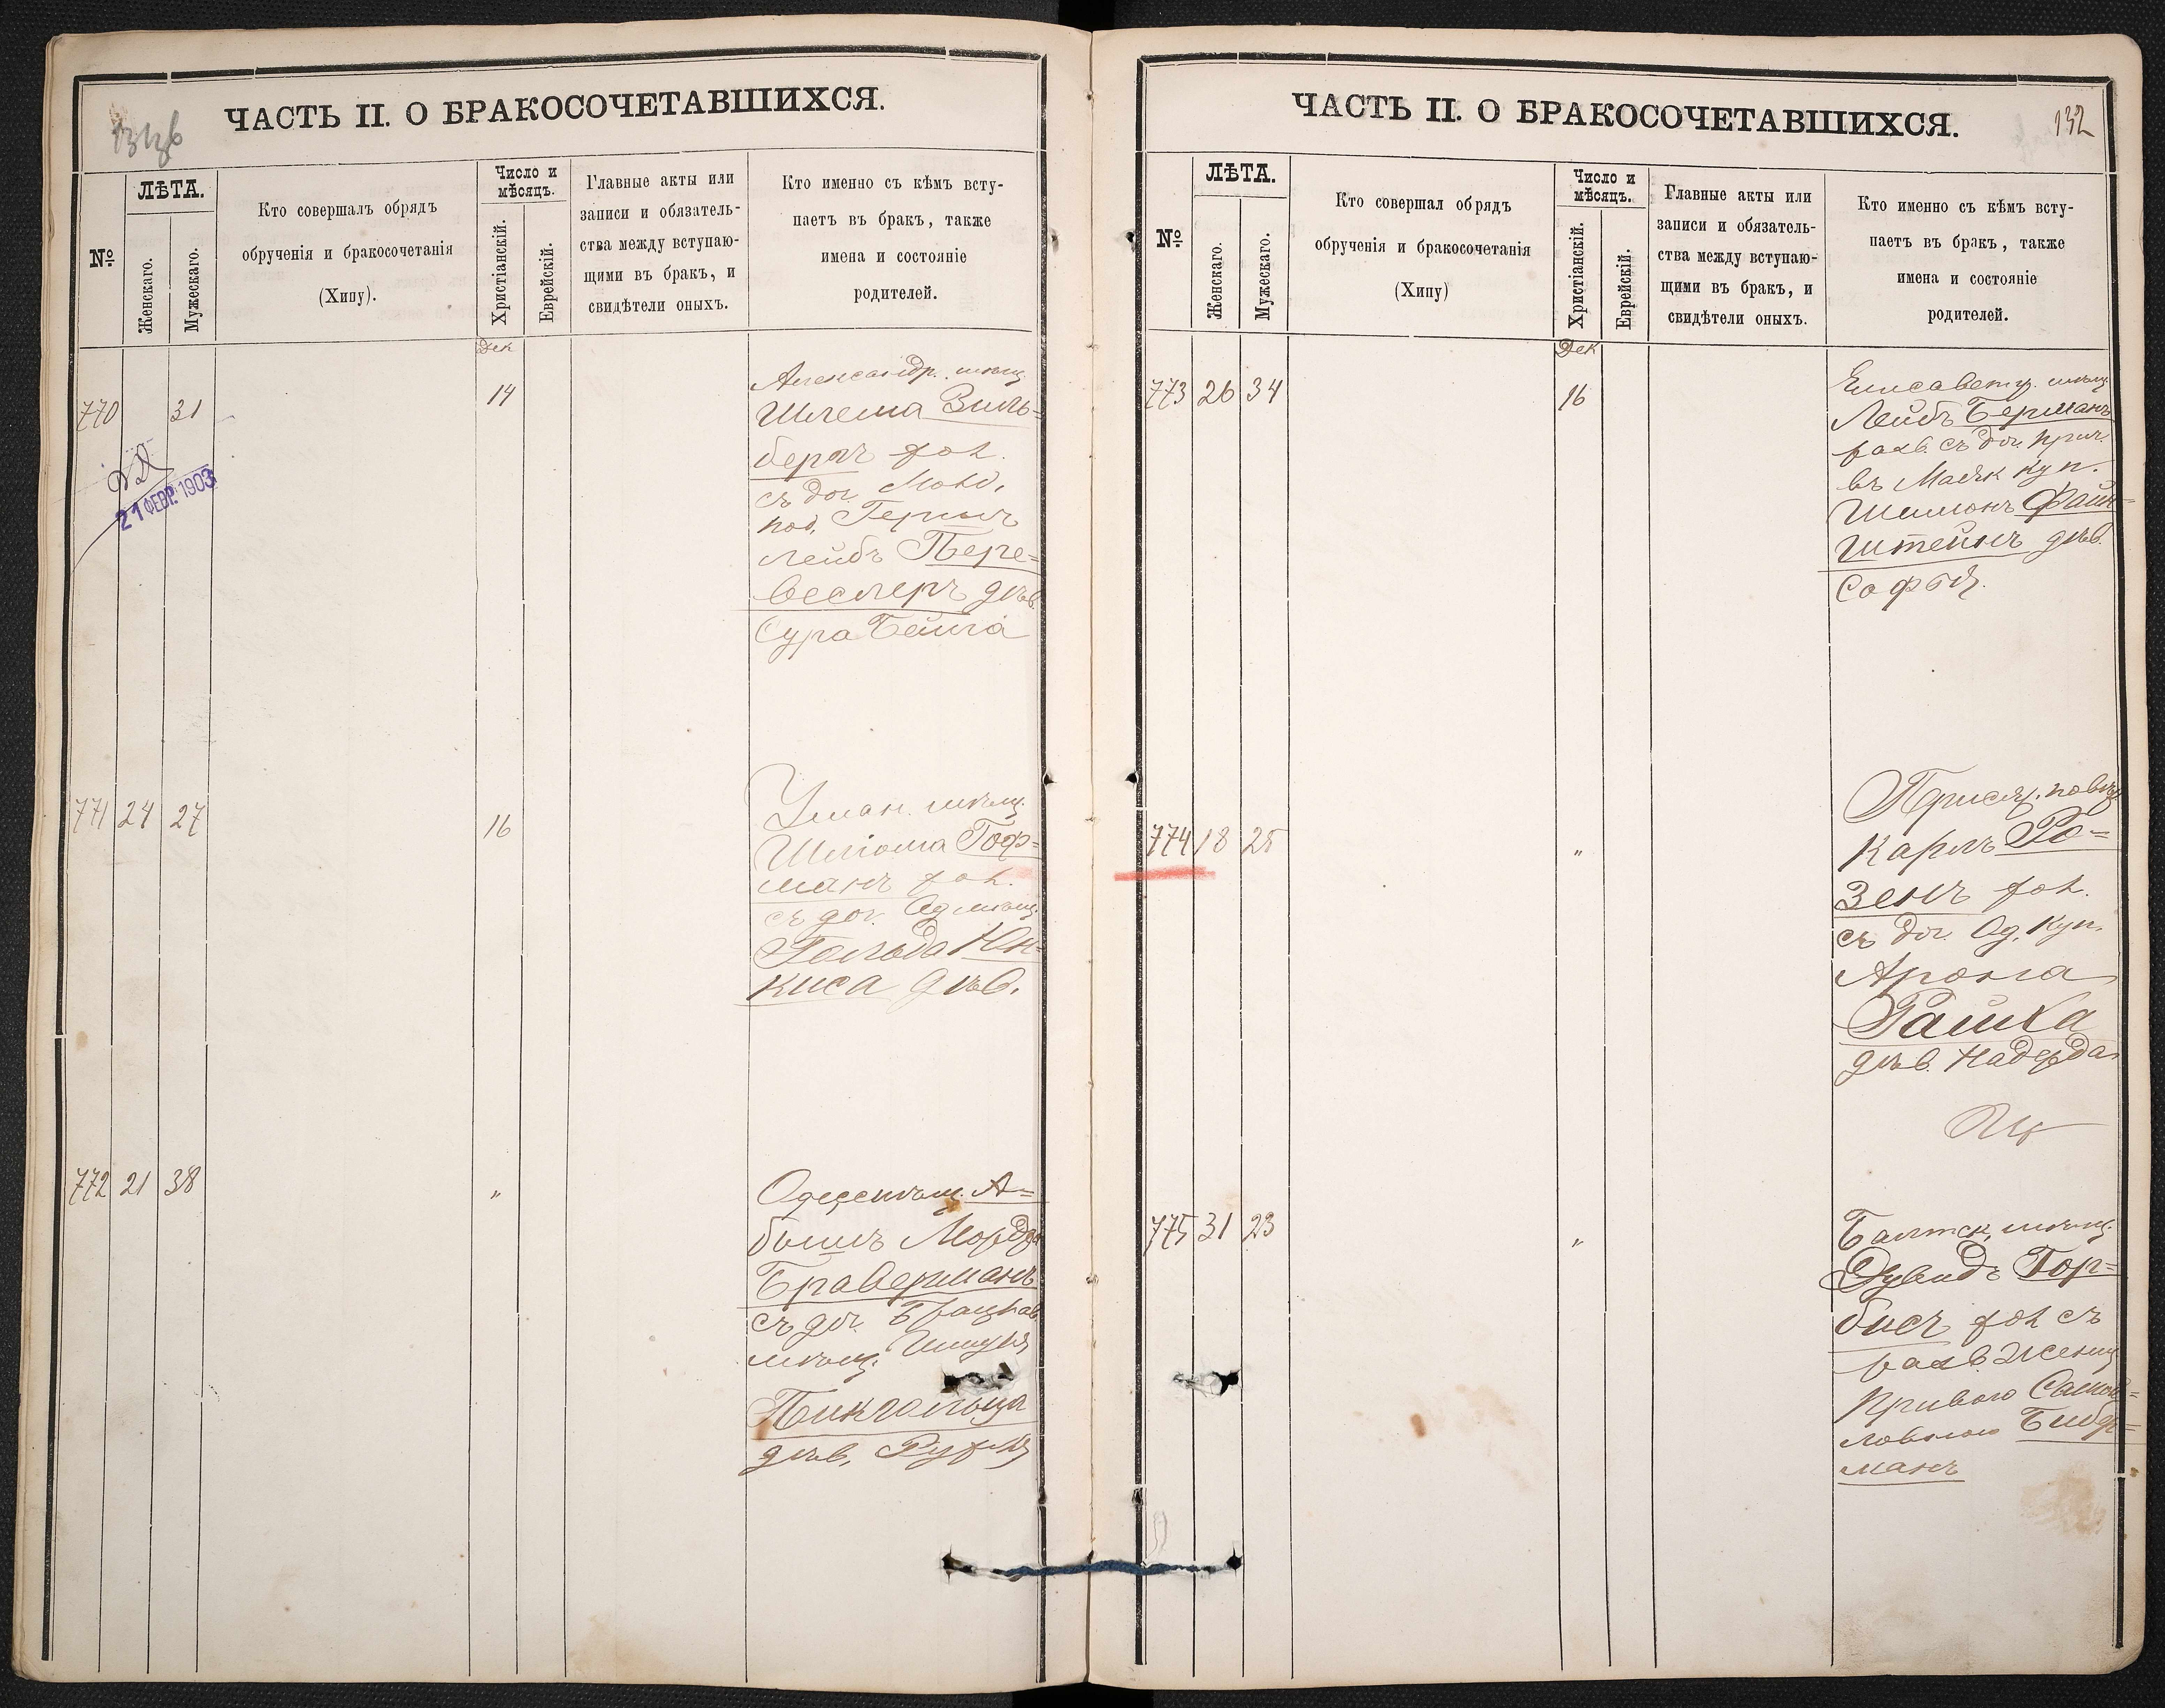 ЧАСТЬ II. О БРАКОСОЧЕТАВШИХСЯ.
№
ЛѢТА.
Женскаго.
Мужескаго.
Кто совершалъ обрядъ
обрученія и бракосочетанія
(Хипу).
Число и
мѣсяцъ.
Христіанскій.
Еврейскій.
Главные акты или
записи и обязатель-
ства между вступаю-
щими въ бракъ, и
свидѣтели оныхъ.
Кто именно съ кѣмъ всту-
паетъ въ бракъ, также
имена и состояніе
родителей.
Дек
770 31
14
Александр. мѣщ.
Шлема Зиль=
беръ хол.
съ доч.
под. Герш
Лейбъ Пере=
веслеръ дѣв.
Сура Бейла
21 ФЕВР. 1903
771 24 27
16
Уман. мѣщ.
Шлiома Гоф=
манъ хол.
съ доч. Од мѣщ.
Гольда Юн=
киса дѣв.
772 21 38
"
Одес. мѣщ. А=
бышъ
Браверманъ
съ доч. Брацлав
мѣщ. Шмуля
Пикгольца
дѣв. Руфля
ЧАСТЬ II. О БРАКОСОЧЕТАВШИХСЯ.
132
№
ЛѢТА.
Женскаго.
Мужескаго.
Кто совершал обрядъ
обрученія и бракосочетанія
(Хипу)
Число и
мѣсяцъ.
Христіанскій.
Еврейскій.
Главные акты или
записи и обязатель-
ства между вступаю-
щими въ бракъ, и
свидѣтели оныхъ.
Кто именно съ кѣмъ всту-
паетъ въ бракъ, также
имена и состояніе
родителей.
Дек
773 26 34
16
Елисаветгр. мѣщ.
Лейбъ Берманъ
разв. съ доч. прич.
въ Маяк куп.
Шимонъ Файн=
штейнъ дѣв.
Софья.
774 18 25
"
Присяж. повѣр
Карлъ Ро=
зенъ хол.
съ доч. Од. куп.
Арона
Рашка
дѣв. Надежда
775 31 23
"
Балтск. мѣщ.
Дувидъ Гор=
бисъ хол съ
разв. женщ
Самой=
ловною Бибер=
манъ